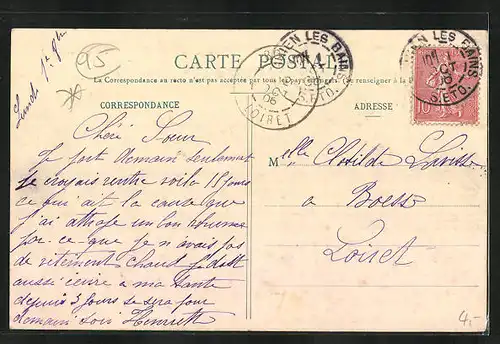 95
Lundi 1h
CARTE POSTALE
La Correspondance au recto n'est pas acceptée par tous les pays étrangers. (Se renseigner à la P
CORRESPONDANCE
ADRESSE
ENGHIEN LES BAINS
S. ET O.
LOIRET
06
10
Chère Soeur
Je part demain seulement
je croyais rentre voila 15 jours
ce qui ait la cause que
j'ai attrape un bon rhumes
par ce que je n avais pas
de vêtement chaud je doit
aussi écrire a ma tante
depuis 3 jours se sera pour
demain soir Henriette
Melle Clotilde
a Boesse
Loiret
4.-